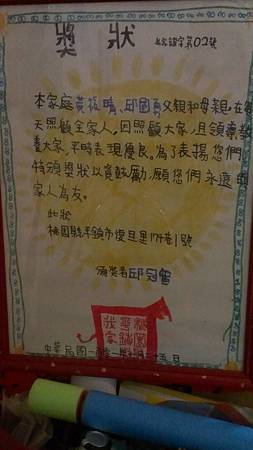 獎狀
字第02號
本家庭黃 晴、邱國勇父親和母親,在每
天照顧全家人,因照顧大家,且領
養大家,平時表現優良。為了表揚您們,
特頒獎狀以資鼓勵,願您們永遠
家人為友。
此狀
桃園縣平鎮市復旦里17鄰 1號
頒獎者邱冠
中華民國一 五日